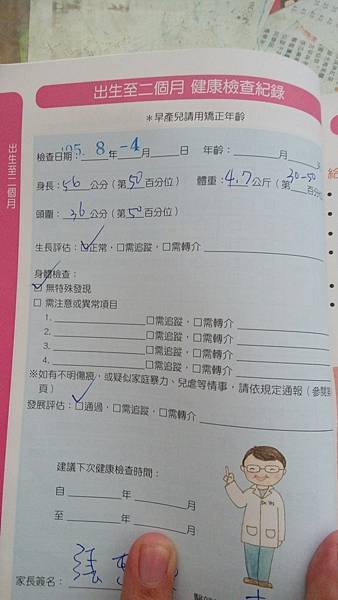 出生至二個月 健康檢查紀錄
＊早產兒請用矯正年齡
出生至二個月
檢查日期：'95. 8 年 -4 月____日 年齡：____月
身長：56 公分（第50百分位） 體重：4.7公斤（第30-50百分位
頭圍：36 公分（第50百分位）
生長評估：☑正常，□需追蹤，□需轉介
身體檢查：
☑ 無特殊發現
□ 需注意或異常項目
1.____□需追蹤，□需轉介
2.____□需追蹤，□需轉介
3.____□需追蹤，□需轉介
4.____□需追蹤，□需轉介
※如有不明傷痕，或疑似家庭暴力、兒虐等情事，請依規定通報（參閱第
頁）
發展評估：☑通過，□需追蹤，□需轉介
建議下次健康檢查時間：
自____年____月
至____年____月
家長簽名：張